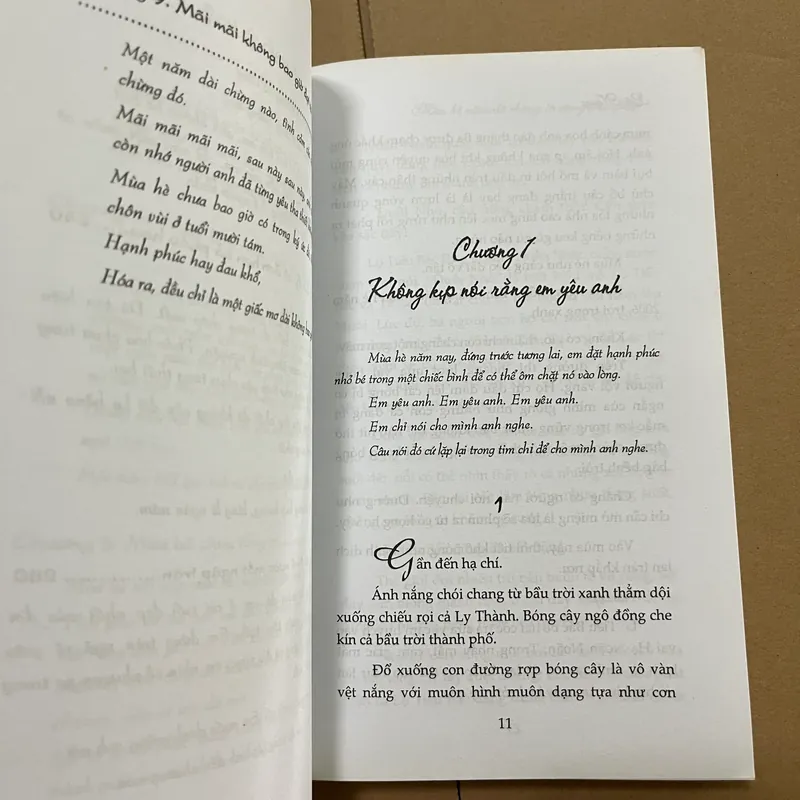 9. Mãi mãi không bao giờ
Một năm dài chừng nào, tình cảm
chừng đó.
Mãi mãi mãi mãi, sau này sau này
còn nhớ người anh đã từng yêu tha thiết
Mùa hè chưa bao giờ có trong ký ức
chôn vùi ở tuổi mười tám.
Hạnh phúc hay đau khổ,
Hóa ra, đều chỉ là một giấc mơ dài không
Chương 1
Không kịp nói rằng em yêu anh
Mùa hè năm nay, đứng trước tương lai, em đặt hạnh phúc
nhỏ bé trong một chiếc bình để có thể ôm chặt nó vào lòng.
Em yêu anh. Em yêu anh. Em yêu anh.
Em chỉ nói cho mình anh nghe.
Câu nói đó cứ lặp lại trong tim chỉ để cho mình anh nghe.
1
Gần đến hạ chí.
Ánh nắng chói chang từ bầu trời xanh thẳm dội
xuống chiếu rọi cả Ly Thành. Bóng cây ngô đồng che
kín cả bầu trời thành phố.
Đổ xuống con đường rợp bóng cây là vô vàn
vệt nắng với muôn hình muôn dạng tựa như cơn
11